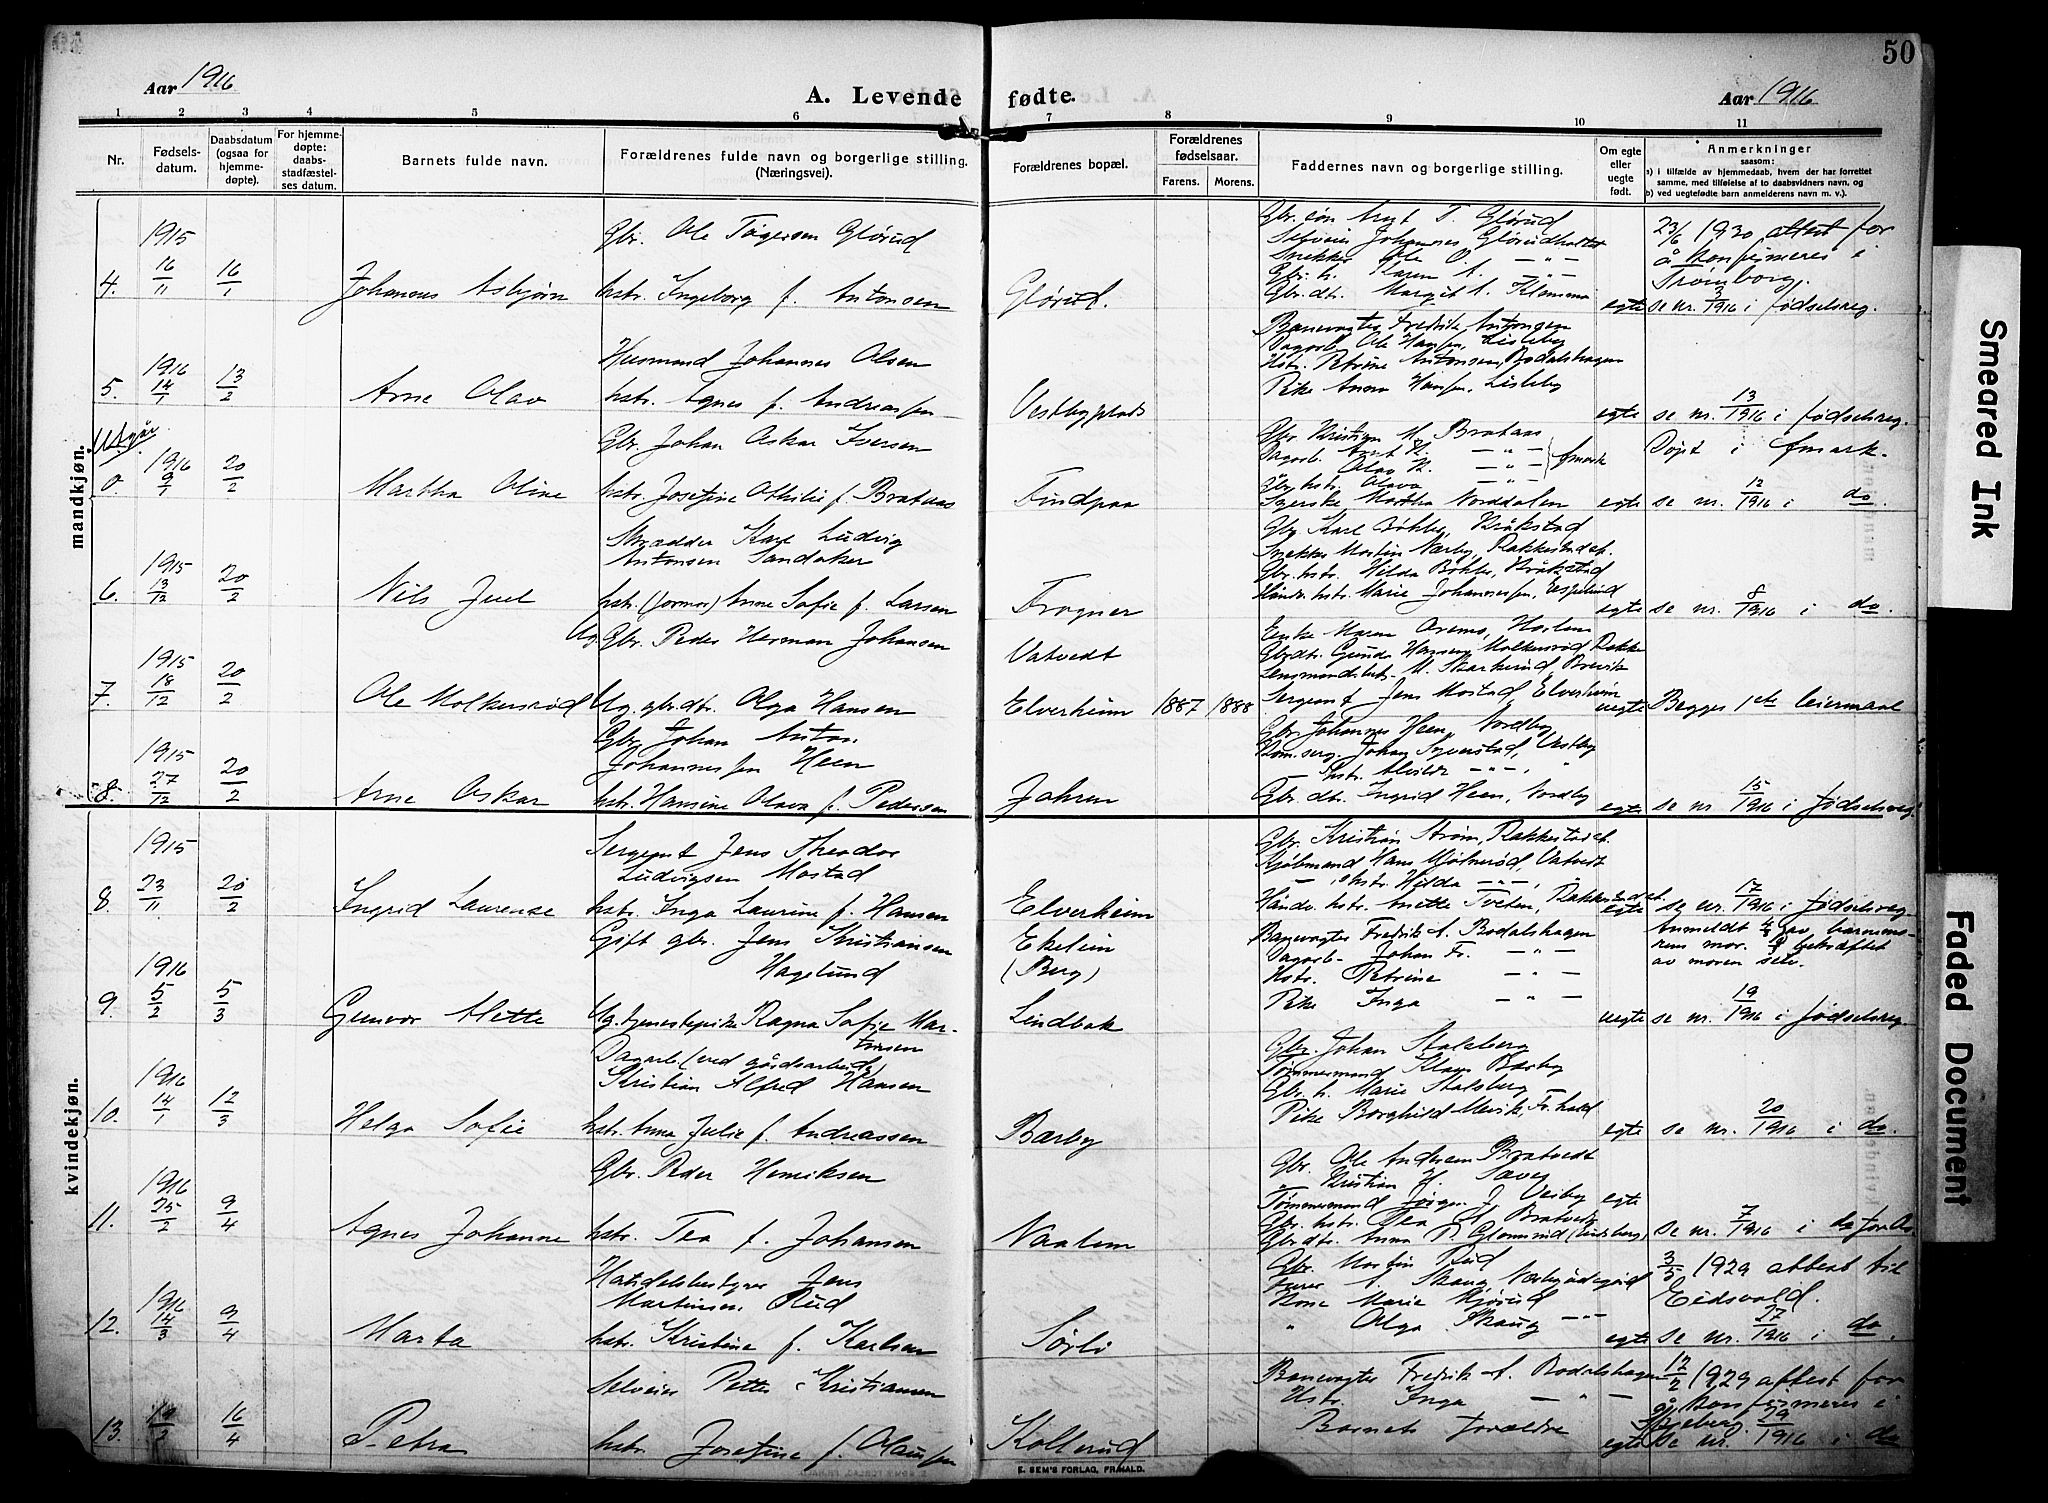 50
Aar 1916
A. Levende fødte.
Aar 1916
1 2 3 4 5 6 7 8 9 10 11
Nr.
Fødsels-
datum.
Daabsdatum
(ogsaa for
hjemme-
døpte).
For hjemme-
døpte:
daabs-
stadfæstel-
ses datum.
Barnets fulde navn.
Forældrenes fulde navn og borgerlige stilling.
(Næringsvei).
Forældrenes bopæl.
Forældrenes
fødselsaar.
Farens. Morens.
Faddernes navn og borgerlige stilling.
Om egte
eller
uegte
født.
Anmerkninger
saasom:
a) i tilfælde av hjemmedaab, hvem der har forrettet
samme, med tilføielse af to daabsvidners navn, og
b) ved uegtefødte barn anmelderens navn m. v.).
mandkjøn.
4. 1915 16/11 16/1
Johannes Asbjørn
Gbr. Ole Tøgersen Glørud
hstr. Ingeborg f. Antonsen
Glørud.
Gbr. søn Arnt T. Glørud
Selveier Johannes Glørudholtet
Snekker Ole O. — " —
Gbr. h. Karen A. — " —
Gbr. dtr. Margit A.
egte
23/6 1930 attest for
å konfirmeres i
Trømborg.
se nr. 3/1916 i fødselsreg.
5. 1916 14/1 13/2
Arne Olav
Husmand Johannes Olsen
hstr. Agnes f. Andreassen
Vestbyplads
Banevogter Fredrik Antonsen
Dagarb. Ole Hansen, Lisleby
Hstr. Petrine Antonsen, Bodalshagen
Pike Anna Hansen, Lisleby
egte
se nr. 13/1916 i fødselsreg.
Utgår
0. 1916 9/1 20/2
Martha Oline
Gbr. Johan Oskar Iversen
hstr. Josefine Othilie f. Brataas
Findpaa
Gbr. Kristian M. Brataas
Dagarb. Arnt K. — " —
Olav K. — " —
Gbr. hstr. Olava
Syerske Martha Norddalen
egte
Døpt i Ømark.
se nr. 12/1916 i do.
6. 1915 13/12 20/2
Nils Juel
Skrædder Karl Ludvig
Antonsen Sandaker
hstr. (Jormor) Anne Sofie f. Larsen
Frogner
Gbr. Karl Bøhler, Kråkstad
Snekker Martin Nærby, Rakkestadet.
Gbr. hstr. Hilda Bøhler, Kråkstad
Handv. hstr. Marie Johannessen, Espelund
egte
se nr. 8/1916 i do.
7. 1915 18/12 20/2
Ole Molkersrød
Ug. Gbr. Peder Herman Johansen
Ug. gbr. dtr. Olga Hansen
Vatvedt
Elverheim
1887 1888
Enke Maren Aremo, Haslem
Gbr. dtr. Gunda Hansen, Molkersrød Rakke
Lensmandsbetj. M. Skarkerud, Brevik
Sergeant Jens Mostad, Elverheim
uegte
Begges 1ste leiermaal
8. 1915 27/12 20/2
Arne Oskar
Gbr. Johan Anton
Johannessen Heen
hstr. Hansine Olava f. Pedersen
Jahren
Gbr. Johannes Heen, Nordby
Kom. serg. Johan Syverstad, Vestby
— hstr. Alvilde — " —
Gbr. dtr. Ingrid Heen, Nordby
egte
se nr. 15/1916 i fødselsreg.
kvindekjøn.
8. 1915 23/11 20/2
Ingrid Laurense
Sergeant Jens Theodor
Ludvigsen Mostad
hstr. Inga Laurine f. Hansen
Elverheim
Gbr. Kristian Strøm, Rakkestadet.
Kjøbmand Hans Mjølnerød, Vatvedt
— hstr. Hilda — " —
Handv. hstr. Anette Tveten, Rakkestadet.
egte
se nr. 17/1916 i fødselsreg.
9. 1916 5/2 5/3
Gunvor Alette
Gift gbr. Jens Kristiansen
Hagelund
Ug. tjenestepike Ragna Sofie Mar-
tinsen
Ekelein
(Berg)
Lindbak
Banevogter Fredrik A. Bodalshagen
Dagarb. Johan Fr. — " —
Hstr. Petrine — " —
Pike Inga — " —
uegte
Anmeldt av barnemo-
rens mor. bekræftet
av moren selv.
se nr. 19/1916 i fødselsreg.
10. 1916 14/1 12/3
Helga Sofie
Dagarb. (ved gårdsarbeid)
Kristian Alfred Hansen
hstr. Anna Julie f. Andreassen
Bærby
Gbr. Johan Stalsberg
Tømmermand Klaus Bærby
Gbr. h. Marie Stalsberg
Pike Borghild Mervik, Fr.hald
egte
se nr. 20/1916 i do.
11. 1916 25/2 9/4
Agnes Johanne
Gbr. Peder Henriksen
hstr. Tea f. Johansen
Naalem
Gbr. Ole Andersen Bratvedt
" Kristian H.
Tømmermand Jørgen J. Veiby
Gbr. hstr. Tea H. Bratvedt
Gbr. dtr. Anna R. Glomsrud (Lindberg)
egte
se nr. 7/1916 i do
12. 1916 14/3 9/4
Marta
Handelsbestyrer Jens
Martinsen Rud
hstr. Kristine f. Karlsen
Sørli
Gbr. Martin Rud
A. Skaug
Kone Marie Kjørud
" Olga Skaug — " —
egte
3/5 1929 attest til
Eidsvold.
se nr. 27/1916 i do.
13. 16/4
Petra
Selveier Petter Kristiansen
hstr. Josefine f. Olaussen
Kollerud
Banevogter Fredrik A. Bodalshagen
Hstr. Inga — " —
Barnets forældre
egte
12/2 1929 attest for
å konfirmeres i
Spydeberg
se nr. 19/1916 i do
E. SEM'S FORLAG, FR.HALD.
Smeared Ink
Faded Document